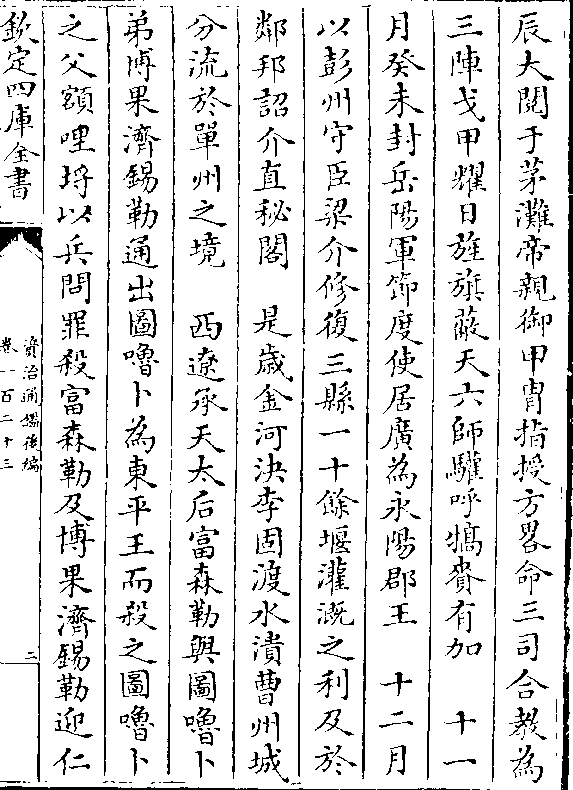 辰大閱于茅灘帝親御甲胄指授方畧命三司合教為
三陣戈甲耀日旌旗蔽天六師驩呼犒賚有加　十一
月癸未封岳陽軍節度使居廣為永陽郡王　十二月
以彭州守臣梁介修復三縣一十餘堰灌溉之利及於
鄰邦詔介直秘閣　是歲金河決李固渡水潰曹州城
分流於單州之境　西遼承天太后富森勒與圖嚕卜
弟博果濟錫勒通出圖嚕卜為東平王而殺之圖嚕卜
之父額哩埒以兵問罪殺富森勒及博果濟錫勒迎仁
欽定四庫全書
資治通鑑後編
卷一百二十三
三